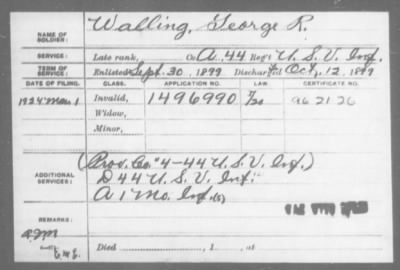 NAME OF SOLDIER: Walling, George R.
SERVICE: Late rank, Co. A. 44 Reg't U. S. V. Inf.
TERM OF SERVICE: Enlisted Sept. 30, 1899 Discharged Oct. 12, 1899
DATE OF FILING. CLASS. APPLICATION NO. LAW. CERTIFICATE NO.
1924 Mar. 1 Invalid, 1496990 962126
Widow,
Minor,
ADDITIONAL SERVICES: (Prov. Co. "4-44 U. S. V. Inf.)
D 44 U. S. V. Inf.
A 1 Mo. Inf.
REMARKS:
Died , 1 , at